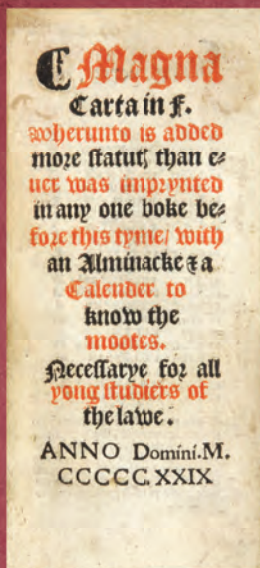 ¶ Magna
Carta in f.
wherunto is added
more statutꝭ than e⸗
uer was imprynted
in any one boke be⸗
fore this tyme/ with
an Alminacke ⁊ a
Calender to
know the
mootes.
Necessarye for all
yong studiers of
the lawe.
ANNO Domini.M.
CCCCC.XXIX